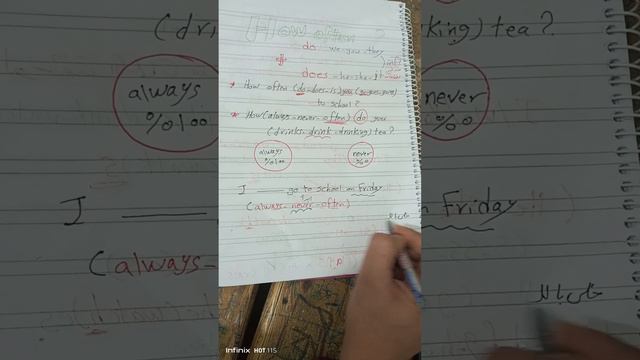 How often ?
do we-you-they
does - he-she-it
* How often (do-does-is) you
to school?
* How (always-never-often) do you
(drinks-drink-drinking) tea?
always
%100
never
%0
I ____ go to school on Friday
(always-never-often)
Infinix HOT 11S